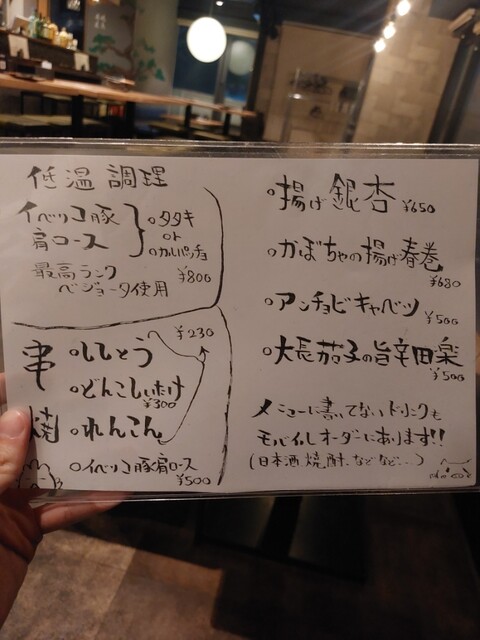 低温調理
イベリコ豚
肩ロース
タタキ
or
カルパッチョ
¥800
最高ランク
ベジョータ使用
串焼
ししとう
¥230
どんこしいたけ
¥300
れんこん
イベリコ豚肩ロース
¥500
揚げ銀杏 ¥650
かぼちゃの揚げ春巻
¥680
アンチョビキャベツ
¥500
大長茄子の旨辛田楽
¥500
メニューに書いてないドリンクも
モバイルオーダーにあります!!
(日本酒、焼酎、などなど...)